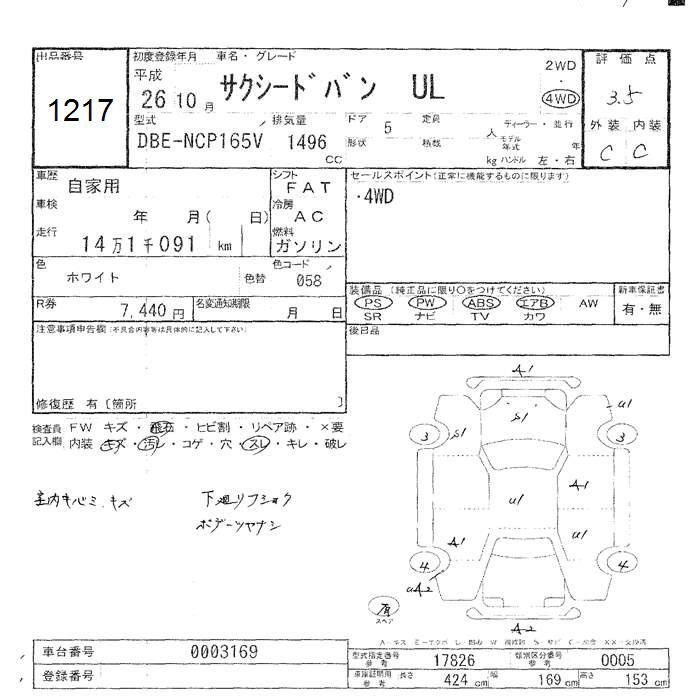 出品番号
1217
初度登録年月 車名・グレード
平成
26 10 月
サクシードバン UL
2WD
・
4WD
評価点
3.5
外装 内装
C C
型式
DBE-NCP165V
排気量
1496
cc
ドア 5 定員 人
形状 積載 kg
ディーラー・並行
モデル年式 年
ハンドル 左・右
車歴 自家用
車検 年 月( 日)
走行 14万1千091 km
シフト
FAT
冷房
AC
燃料
ガソリン
色 ホワイト 色替
色コード
058
R券 7,440円
名変通知期限 月 日
セールスポイント(正常に機能するものに限ります)
・4WD
装備品 (純正品に限り○をつけてください)
PS PW ABS エアB AW
SR ナビ TV カワ
新車保証書
有・無
後日品
注意事項申告欄(不具合内容等は具体的に記入して下さい)
修復歴 有〔箇所 〕
検査員記入欄
FW キズ・飛石・ヒビ割・リペア跡・×要
内装 キズ・汚レ・コゲ・穴・スレ・キレ・破レ
室内キバミ、キズ
下廻リフショク
ボデーツヤナシ
A1
S1
U1
3
S1
3
A1
U1
A1
U1
4
4
UA2
有
スペア
A2
車台番号 0003169
登録番号
型式指定番号
参考
17826
類別区分番号
参考
0005
車庫証明用
参考
長さ 424 cm 幅 169 cm 高さ 153 cm